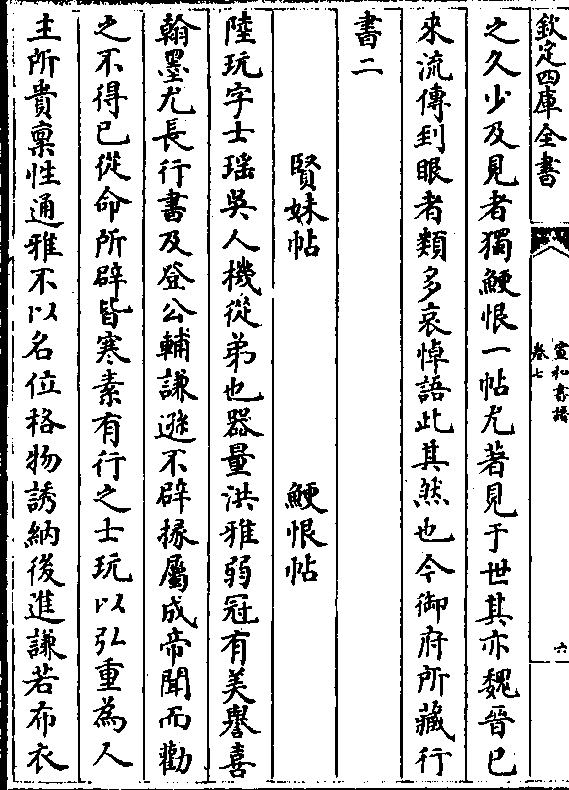 欽定四庫全書
宣和書譜
卷七
六
之久少及見者獨鯁恨一帖尤著見于世其亦魏晉已
來流傳到眼者類多哀悼語此其然也今御府所藏行
書二
賢妹帖
鯁恨帖
陸玩字士瑶吳人機從弟也器量洪雅弱冠有美譽喜
翰墨尤長行書及登公輔謙遜不辟掾屬成帝聞而勸
之不得已從命所辟皆寒素有行之士玩以弘重為人
主所貴禀性通雅不以名位格物誘納後進謙若布衣